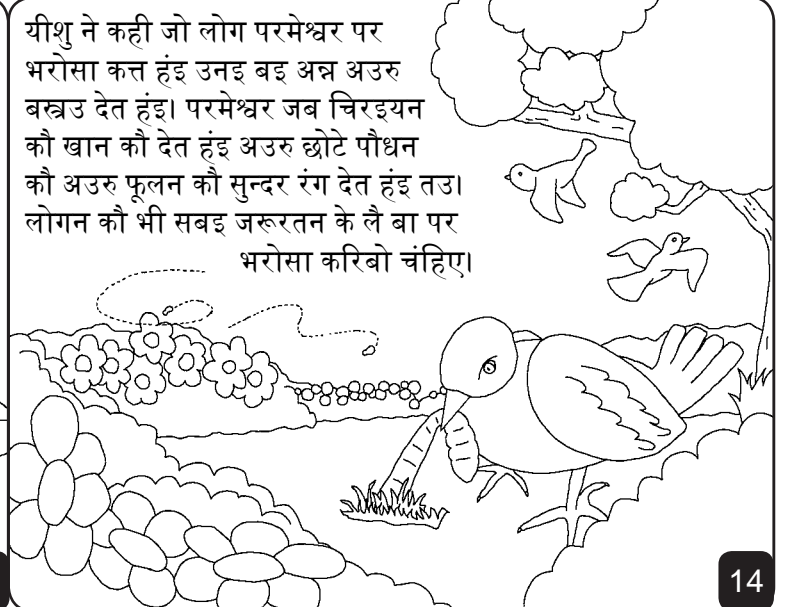 यीशु ने कही जो लोग परमेश्वर पर
भरोसा कत्त हंइ उनइ बइ अन्न अउरु
बस्त्रउ देत हंइ। परमेश्वर जब चिरइयन
कौ खान कौ देत हंइ अउरु छोटे पौधन
कौ अउरु फूलन कौ सुन्दर रंग देत हंइ तउ।
लोगन कौ भी सबइ जरूरतन के लै बा पर
भरोसा करिबो चंहिए।
14